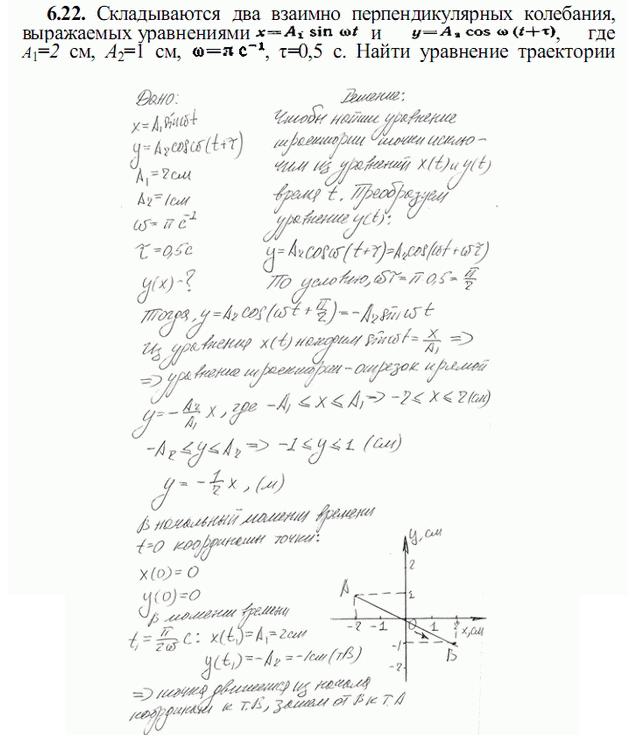 6.22. Складываются два взаимно перпендикулярных колебания,
выражаемых уравнениями x=A₁ sin ωt и y=A₂ cos ω (t+τ), где
A₁=2 см, A₂=1 см, ω=π с⁻¹, τ=0,5 с. Найти уравнение траектории
Дано:
x=A₁sinωt
y=A₂cosω(t+τ)
A₁=2см
A₂=1см
ω=π с⁻¹
τ=0,5с
y(x)-?
Решение:
Чтобы найти уравнение
траектории точки исклю-
чим из уравнений x(t) и y(t)
время t. Преобразуем
уравнение y(t):
y=A₂cosω(t+τ)=A₂cos(ωt+ωτ)
По условию, ωτ=π 0,5=π/2
Тогда, y=A₂cos(ωt+π/2)=-A₂sinωt
Из уравнения x(t) находим sinωt=x/A₁ =>
=> уравнение траектории-отрезок прямой
y=-A₂/A₁ x, где -A₁≤x≤A₁=> -2≤x≤2(см)
-A₂≤y≤A₂=> -1≤y≤1 (см)
y=-1/2 x, (м)
В начальный момент времени
t=0 координаты точки:
x(0)=0
y(0)=0
В момент времени
t₁=π/2ω с: x(t₁)=A₁=2см
y(t₁)=-A₂=-1см(тВ)
=> точка движется из начала
координат к т.В, затем от В к т.А
y,см
2
A
1
-2 -1 0 1 2 x,см
-1
B
-2